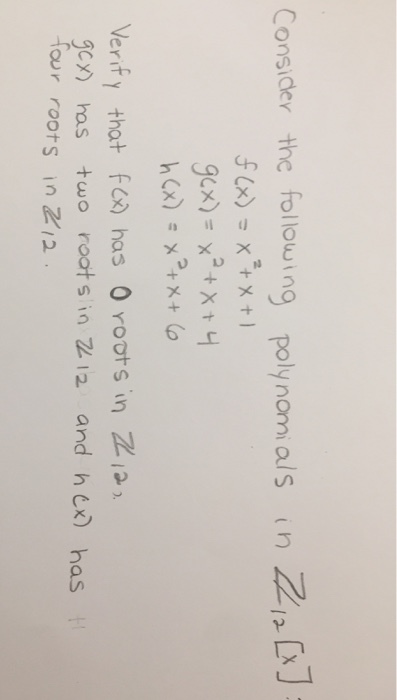 Consider the following polynomials in ℤ₁₂[x]:
f(x) = x² + x + 1
g(x) = x² + x + 4
h(x) = x² + x + 6
Verify that f(x) has 0 roots in ℤ₁₂,
g(x) has two roots in ℤ₁₂ and h(x) has
four roots in ℤ₁₂.